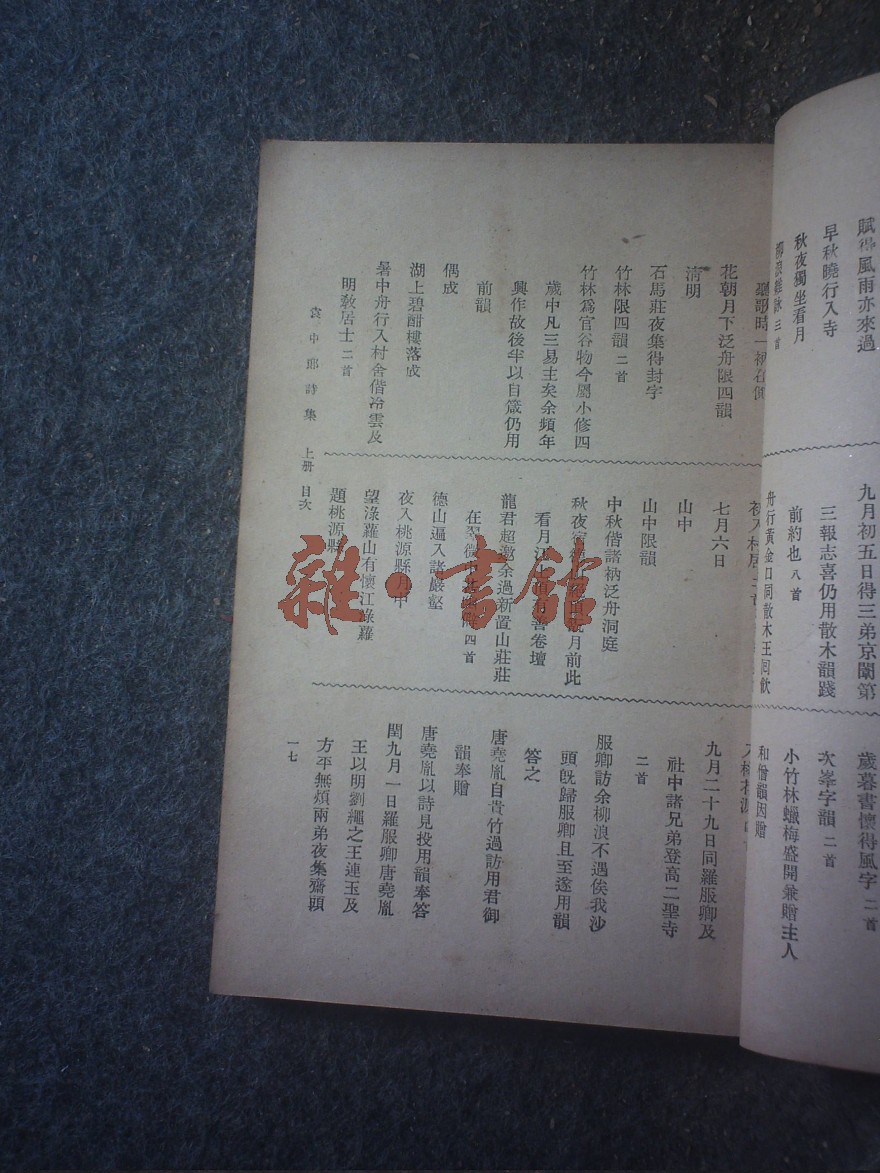 賦得風雨亦來過
早秋曉行入寺
秋夜獨坐看月
柳浪雜詠三首
九月初五日得三弟京闈第
三報志喜仍用散木韻踐
前約也八首
舟行黃金口同散木王回飲
歲暮書懷得風字二首
次峯字韻二首
小竹林蠟梅盛開兼贈主人
和僧韻因贈
聽歌時一衲在側
花朝月下泛舟限四韻
清明
石馬莊夜集得封字
竹林限四韻二首
竹林爲官谷物今屬小修四
歲中凡三易主矣余頻年
興作故後半以自箴仍用
前韻
偶成
湖上碧酣樓落成
暑中舟行入村舍偕冷雲及
明教居士二首
初入村居二首
七月六日
山中
山中限韻
中秋偕諸衲泛舟洞庭
秋夜 月前此
看月江 善卷壇
龍君超邀余過新置山莊莊
在翠微 四首
德山遍入諸巖壑
夜入桃源縣 中
望淥蘿山有懷江淥蘿
題桃源縣
入桃花源四首
九月二十九日同羅服卿及
社中諸兄弟登高二聖寺
二首
服卿訪余柳浪不遇俟我沙
頭旣歸服卿且至遂用韻
答之
唐堯胤自貴竹過訪用君御
韻奉贈
唐堯胤以詩見投用韻奉答
閏九月一日羅服卿唐堯胤
王以明劉繩之王連玉及
方平無煩兩弟夜集齋頭
袁中郎詩集 上冊 目次
一七
雜·書館